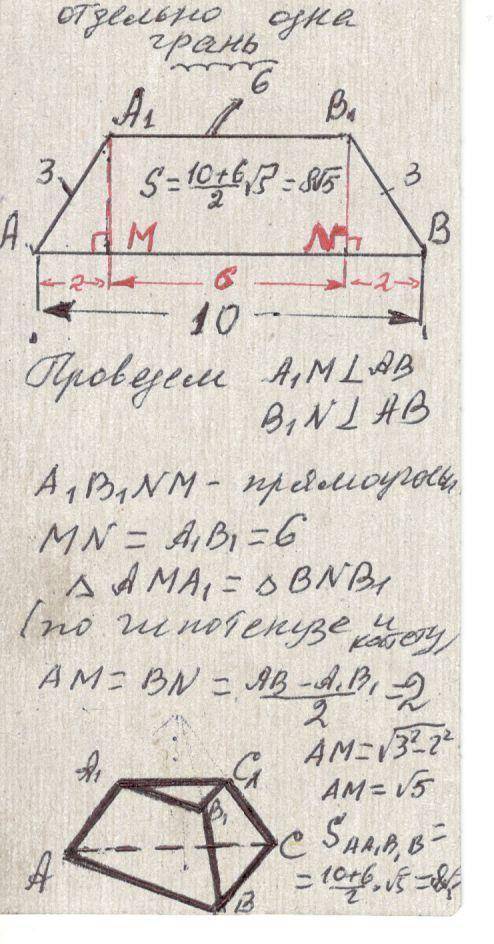 отдельно одна
грань
6
A₁ B₁
3 S = (10+6)/2 √5 = 8√5 3
A M N B
2 6 2
10
Проведем A₁M⊥AB
B₁N⊥AB
A₁B₁NM – прямоугольн.
MN = A₁B₁ = 6
△ AMA₁ = △ BNB₁
(по гипотенузе и катету)
AM = BN = (AB – A₁B₁)/2 = 2
AM = √(3²–2²)
AM = √5
A₁ C₁
B₁
A C
B
S AA₁B₁B =
= (10+6)/2 · √5 = 8√5